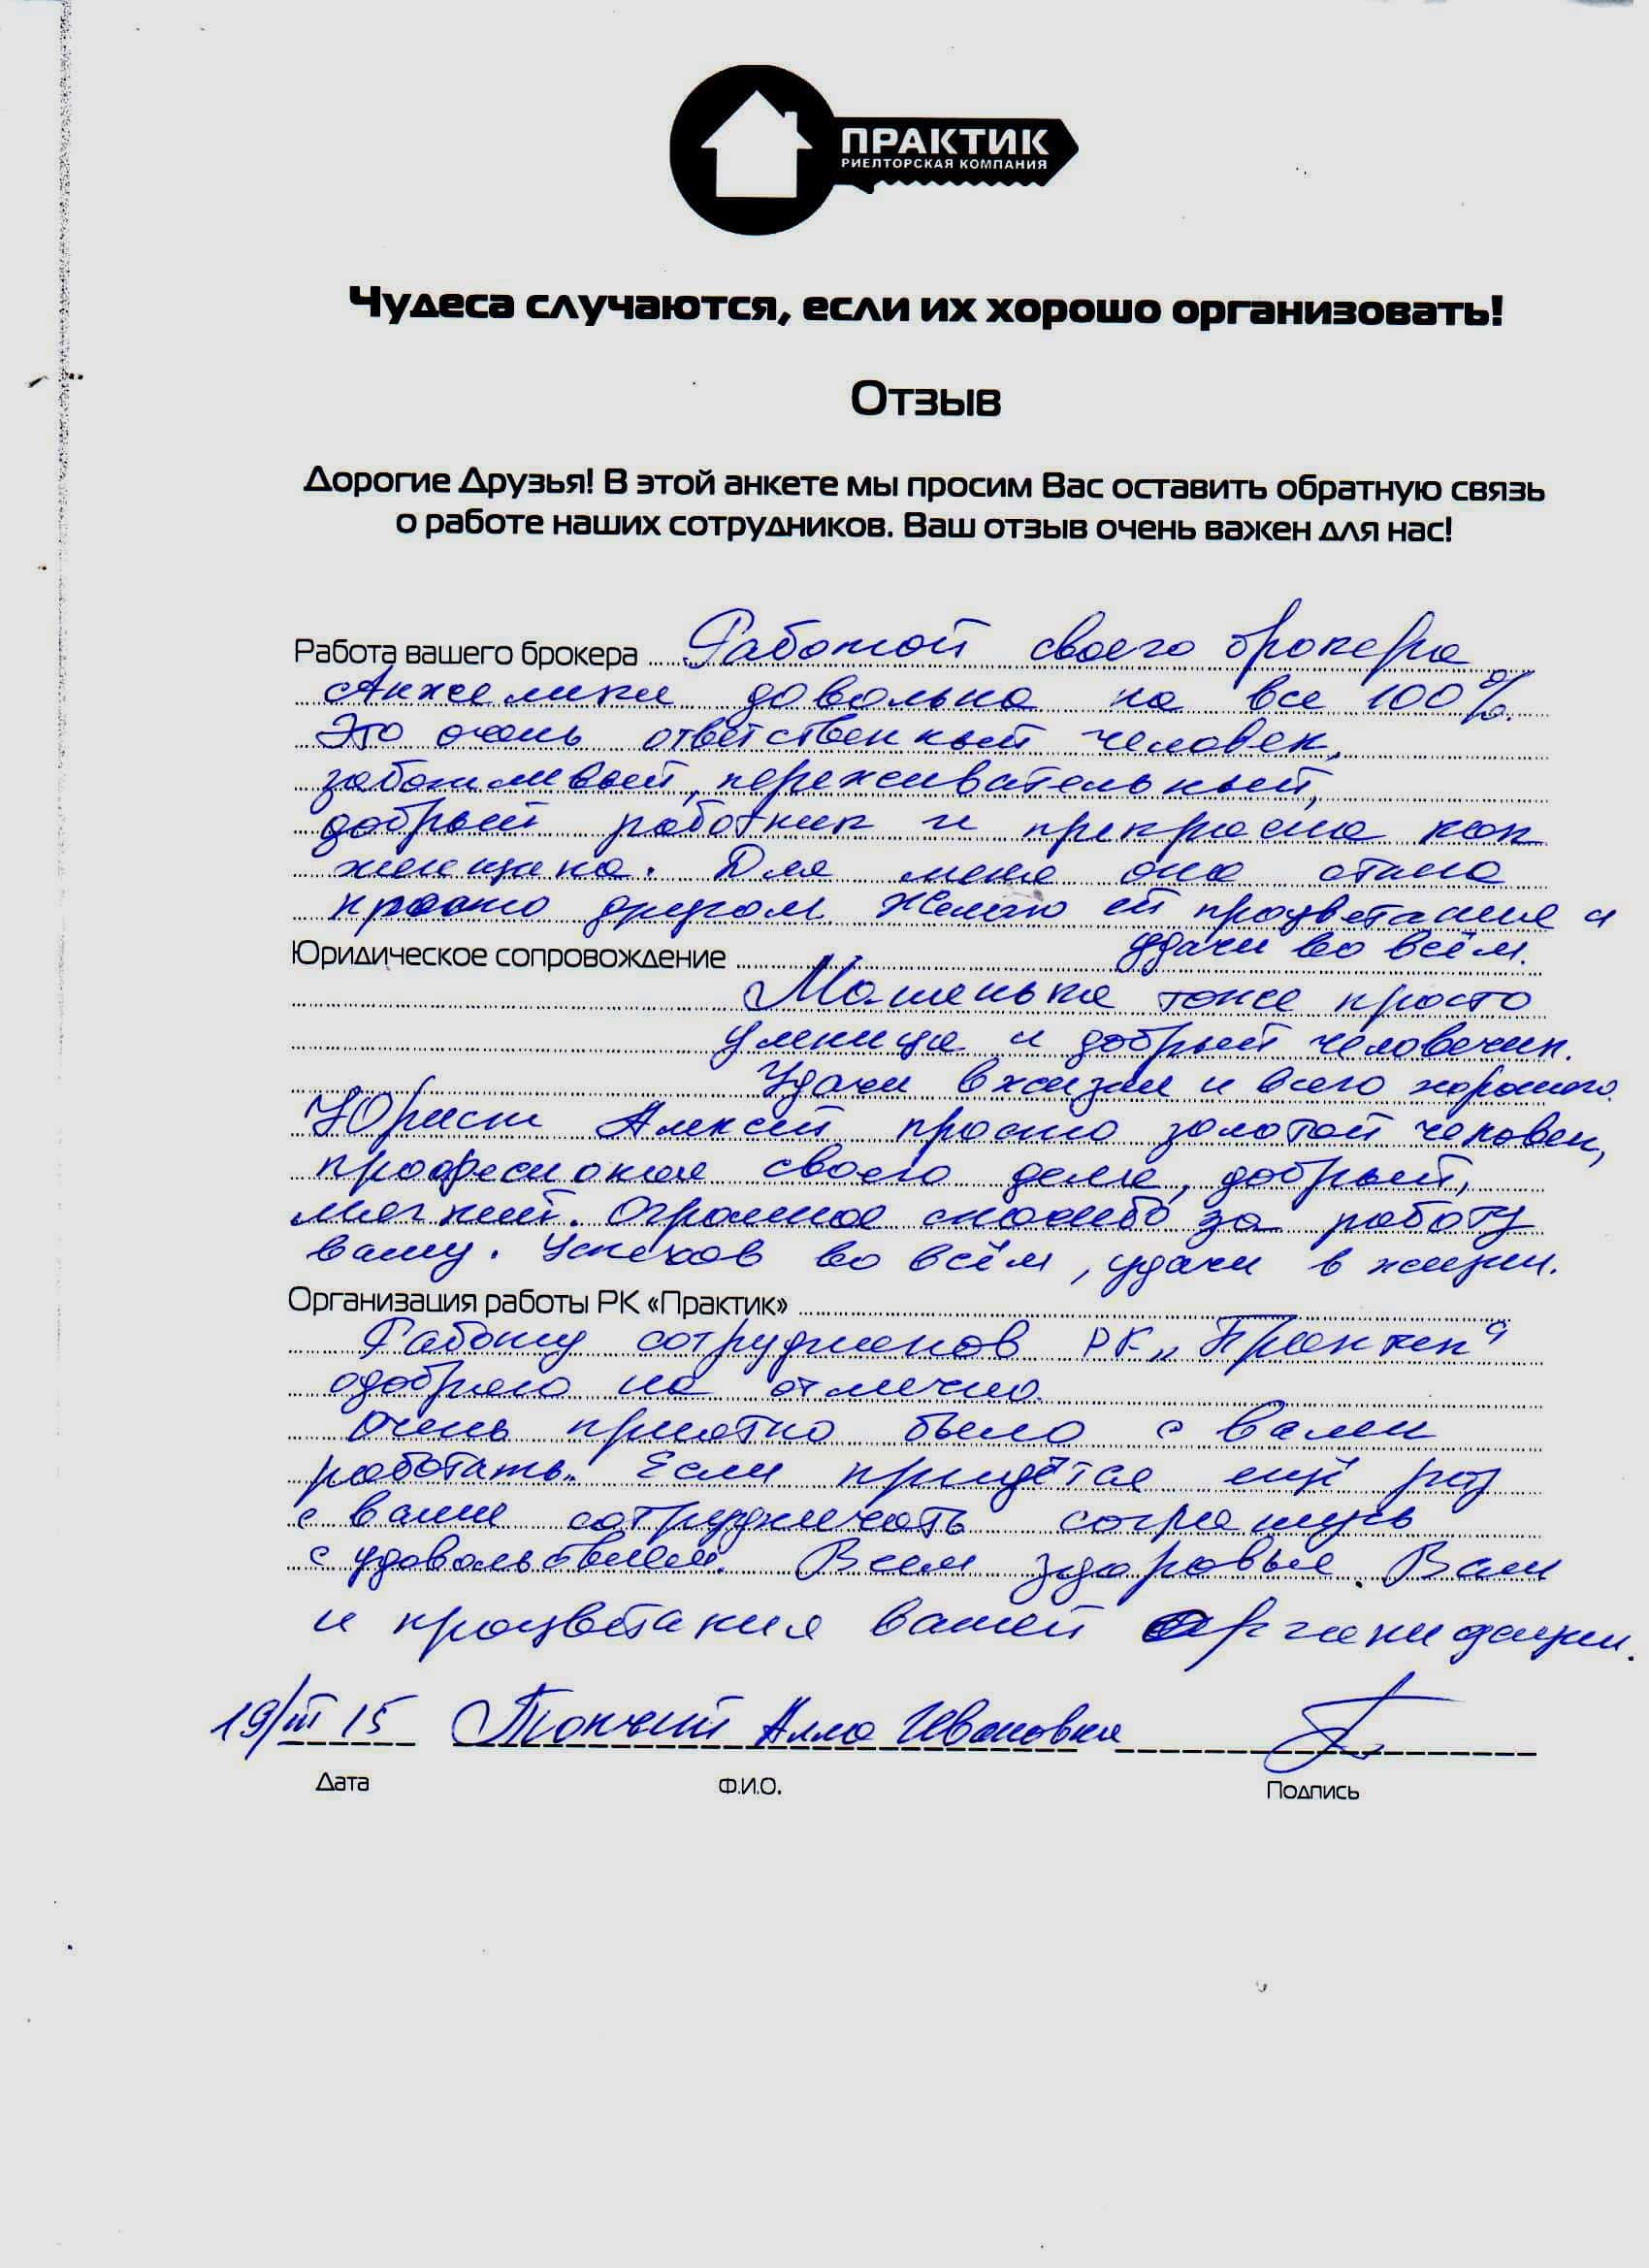 ПРАКТИК
РИЕЛТОРСКАЯ КОМПАНИЯ
Чудеса случаются, если их хорошо организовать!
Отзыв
Дорогие Друзья! В этой анкете мы просим Вас оставить обратную связь
о работе наших сотрудников. Ваш отзыв очень важен для нас!
Работа вашего брокера Работой своего брокера
Анжелики довольна на все 100%.
Это очень ответственный человек,
заботливый, переживательный,
добрый работник и прекрасна как
женщина. Для меня она стала
просто другом. Желаю ей процветания и
удачи во всём.
Юридическое сопровождение
Машенька тоже просто
умница и добрый человечек.
Удачи в жизни и всего хорошего.
Юрист Алексей просто золотой человек,
професионал своего дела, добрый,
мягкий. Огромное спасибо за работу
вашу. Успехов во всём, удачи в жизни.
Организация работы РК «Практик»
Работу сотрудников РК „Практик"
одобряю на отлично.
Очень приятно было с вами
работать. Если придётся ещё раз
с вами сотрудничать соглашусь
с удовольствием. Всем здоровья Вам
и процветания вашей организации.
19/III 15 Алла Ивановна
Дата Ф.И.О. Подпись